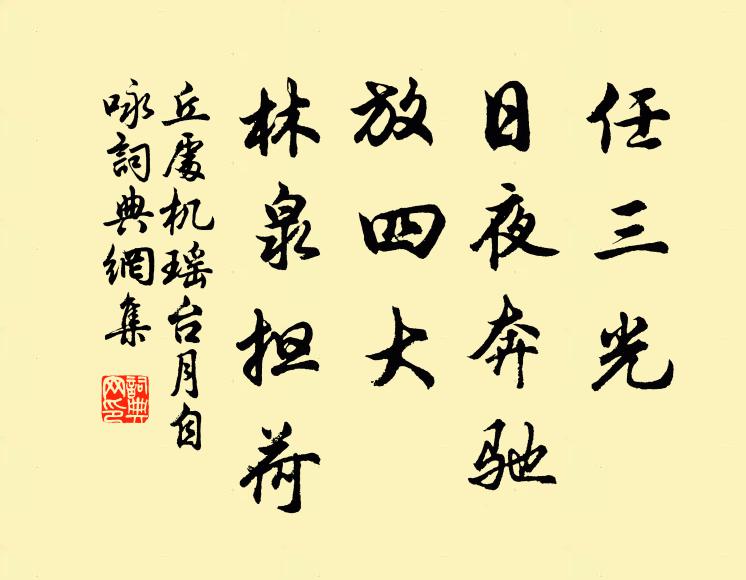 任三光
日夜奔驰
放四大
林泉担荷
丘處机瑶台月自
咏詞典網集
詞典网印